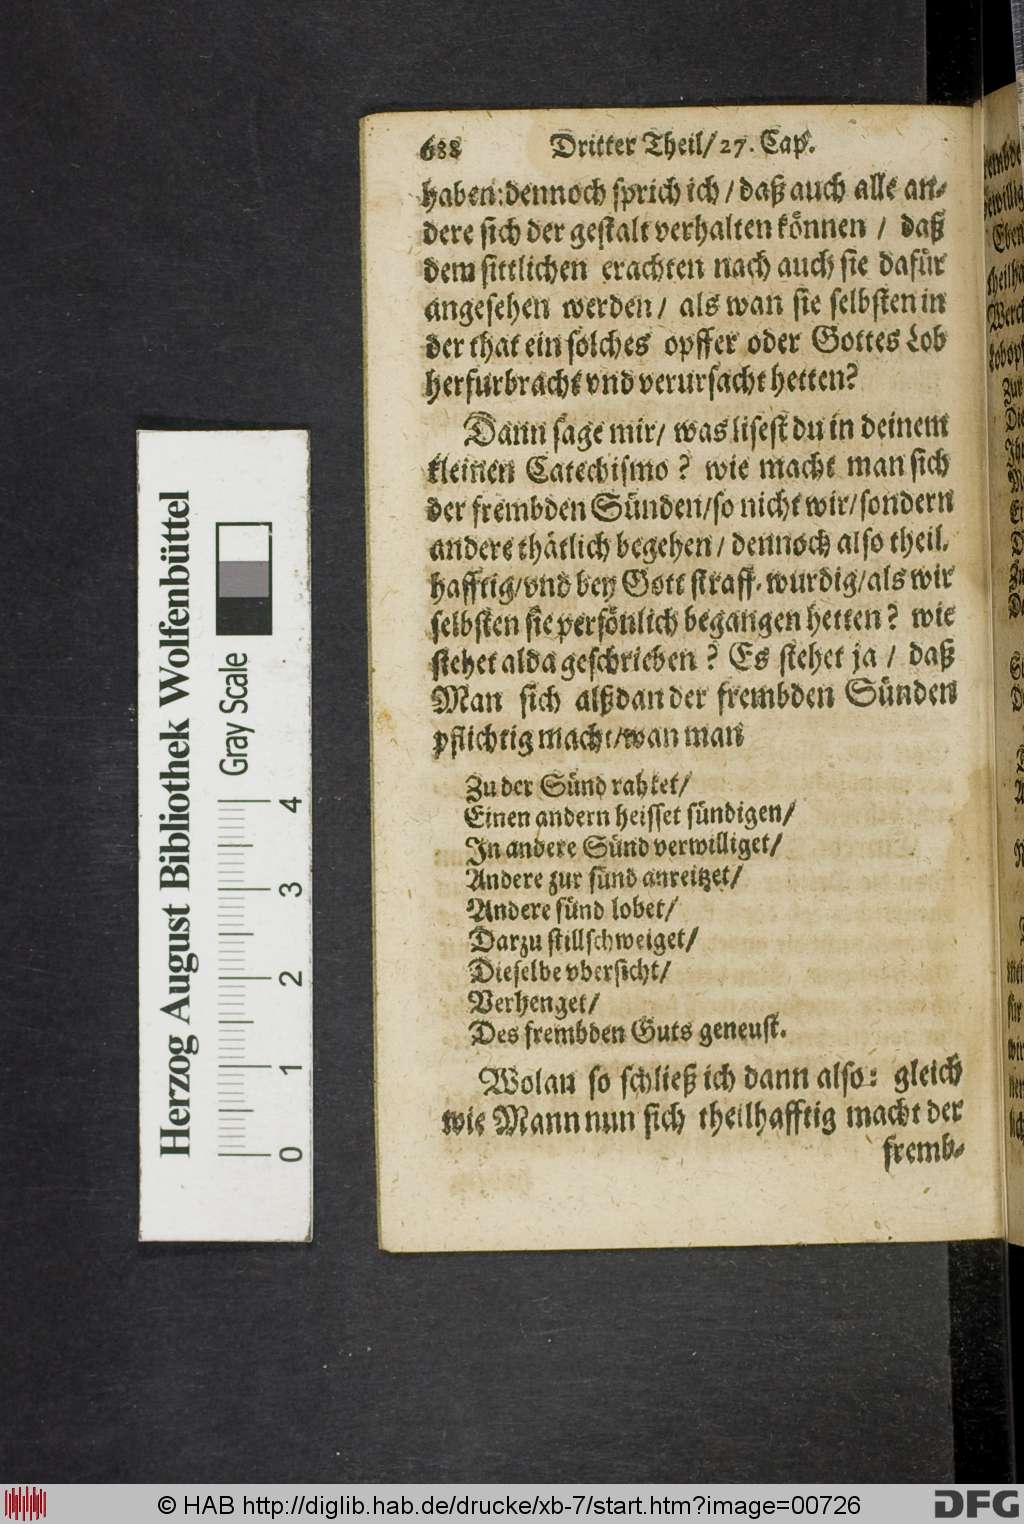 688 Dritter Theil/ 27. Cap.
haben: dennoch sprich ich / daß auch alle an-
dere sich der gestalt verhalten können / daß
dem sittlichen erachten nach auch sie dafür
angesehen werden / als wan sie selbsten in
der that ein solches opffer oder Gottes Lob
herfurbracht vnd verursacht hetten?
Dann sage mir / was lisest du in deinem
kleinen Catechismo ? wie macht man sich
der frembden Sünden / so nicht wir / sondern
andere thätlich begehen / dennoch also theil-
hafftig / vnd bey Gott straff-wurdig / als wir
selbsten sie persönlich begangen hetten ? wie
stehet alda geschrieben ? Es stehet ja / daß
Man sich alßdan der frembden Sünden
pflichtig macht / wan man
Zu der Sünd rahtet /
Einen andern heisset sündigen /
In andere Sünd verwilliget /
Andere zur sünd anreitzet /
Andere sünd lobet /
Darzu stillschweiget /
Dieselbe vbersicht /
Verhenget /
Des frembden Guts geneust.
Wolan so schließ ich dann also: gleich
wie Mann nun sich theilhafftig macht der
fremb-
Herzog August Bibliothek Wolfenbüttel
Gray Scale
0 1 2 3 4
© HAB http://diglib.hab.de/drucke/xb-7/start.htm?image=00726
DFG